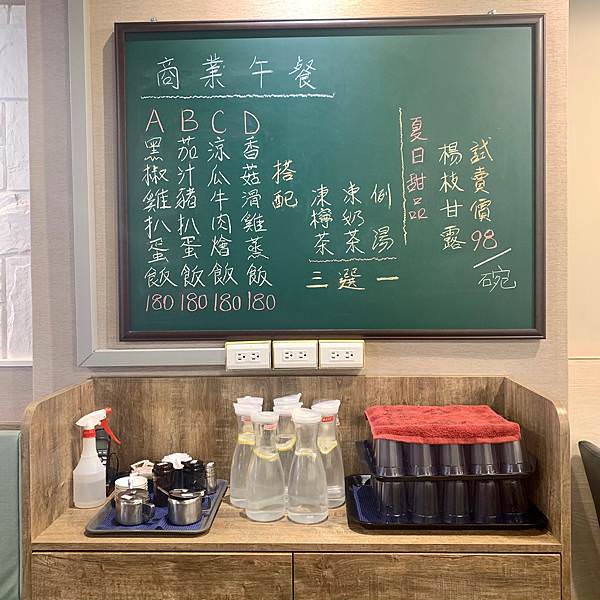 商業午餐
A 黑椒雞扒蛋飯 180
B 茄汁豬扒蛋飯 180
C 涼瓜牛肉燴飯 180
D 香菇滑雞蒸飯 180
搭配
例湯
凍奶茶
凍檸茶
三選一
夏日甜品
楊枝甘露
試賣價98/碗